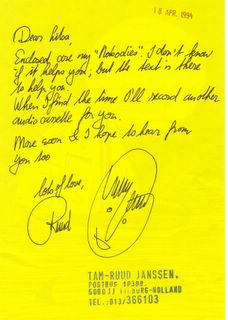 18 APR. 1994
Dear
Enclosed are my "Nobodies". I don't know
if it helps you, but the text is there
to help you.
When I find the time I'll record another
audiocassette for you.
More soon & I hope to hear from
you too
lots of love,
Ruud
TAM-RUUD JANSSEN.
POSTBUS 10388.
5000 JJ TILBURG-HOLLAND
TEL.:013/366103